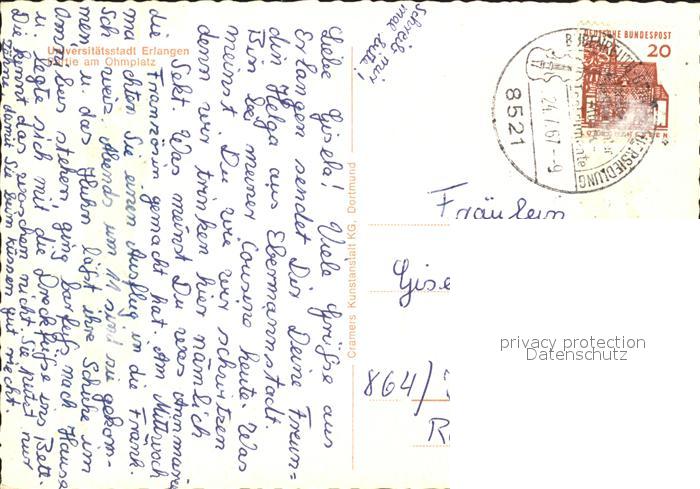 Universitätsstadt Erlangen
Partie am Ohmplatz
Schreib mir
mal bitte!
Liebe Gisela! Viele Grüße aus
Erlangen sendet Dir Deine Freun=
din Helga aus Ebermannstadt.
Bin bei meiner Cousine heute. Was
meinst Du wie wir schwitzen
denn wir trinken hier nämlich
Sekt. Was meinst Du was Annmarie
die Französin gemacht hat. Am Mittwoch
machten Sie einen Ausflug in die Fränk.
Schweiz. Abends um 11 sind sie gekom-
men u. das Huhn läßt ihre Schuhe im
Omnibus stehen ging barfuß nach Hause
u. legte sich mit die Dreckfüße ins Bett.
Die kennt das waschen nicht. Sie putzt nur
damit Sie gut riecht
Cramers Kunstanstalt KG, Dortmund
DEUTSCHE BUNDESPOST
20
8521
24.7.67-9
Fräulein
Gise
864/
privacy protection
Datenschutz